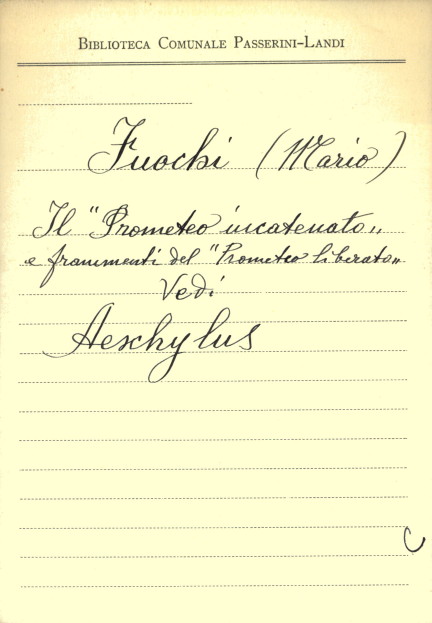 Biblioteca Comunale Passerini-Landi
Fuochi (Mario)
Il "Prometeo incatenato„
e frammenti del "Prometeo liberato„
Vedi
Aeschylus
C